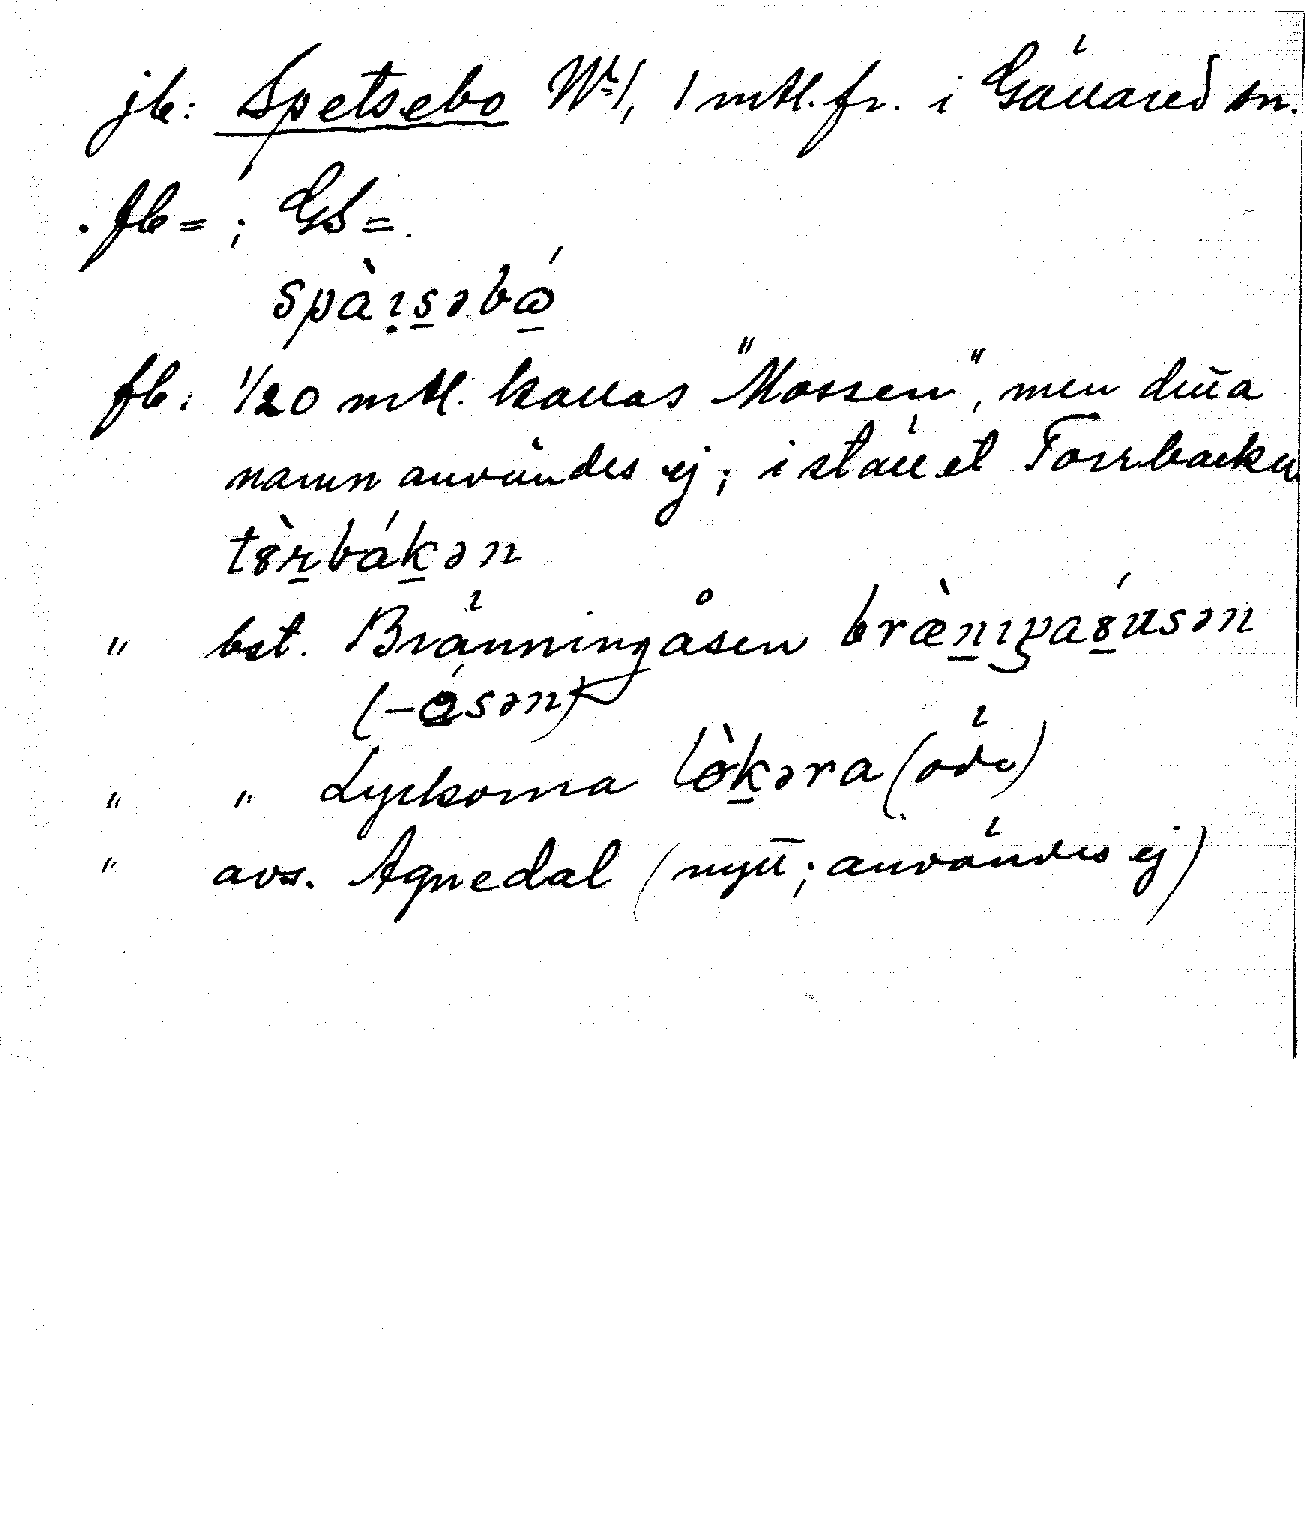 jb: Spetsebo Nr 1, 1 mtl. fr. i Gällared sn.
fb = ; GS =.
spàɪs̱əbώ̱
fb: 1/20 mtl. kallas "Mossen", men detta
namn användes ej; i stället Torrbacken
tòṟbáḵən
" bst. Bränningåsen
(-åsən)
" " Lyckorna lø̀ḵəra (öde)
" avs. Agnedal (nytt; användes ej)